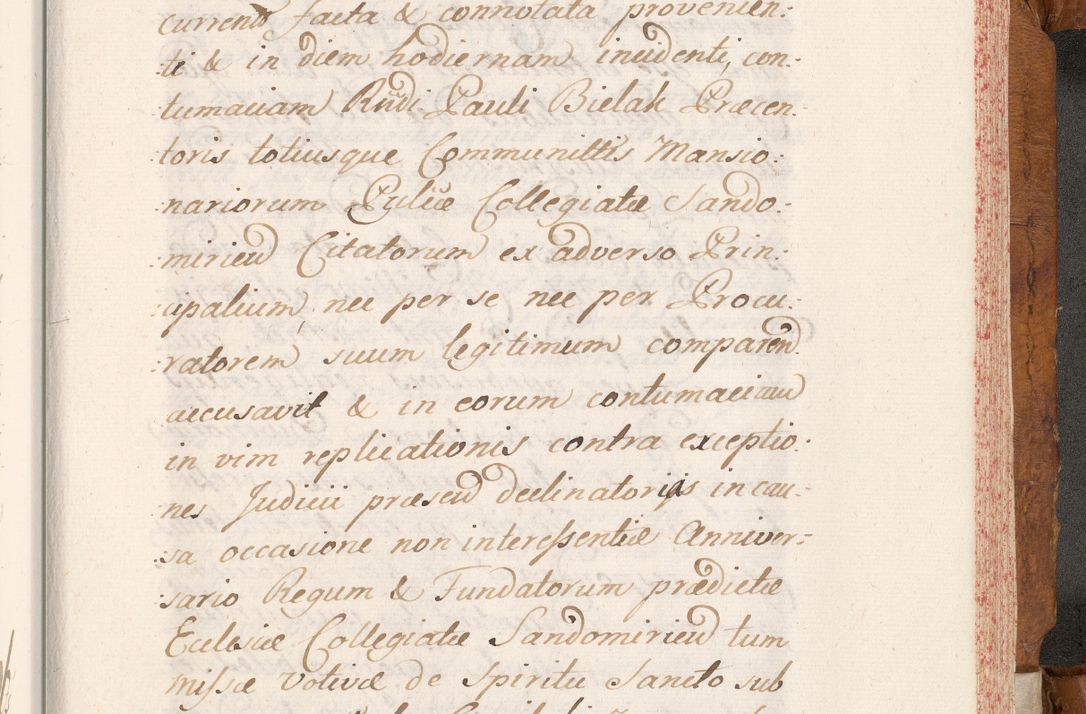 current facta & connotata provenien-
ti & in diem hodiernam incidenti, con-
tumaciam Rndi Pauli Bielak Præcen-
toris totiusque Communittis Mansio-
nariorum Ecclæ Collegiatæ Sando-
mirien Citatorum ex adverso Prin-
cipalium, nec per se nec per Procu-
ratorem suum legitimum comparen
accusavit & in eorum contumaciam
in vim replicationis contra exceptio-
nes Judicii præsen declinatorijs in cau-
sa occasione non interessentiæ Anniver-
sario Regum & Fundatorum prædictæ
Ecclesiæ Collegiatæ Sandomirien tum
missæ Votivæ de Spiritu Sancto sub